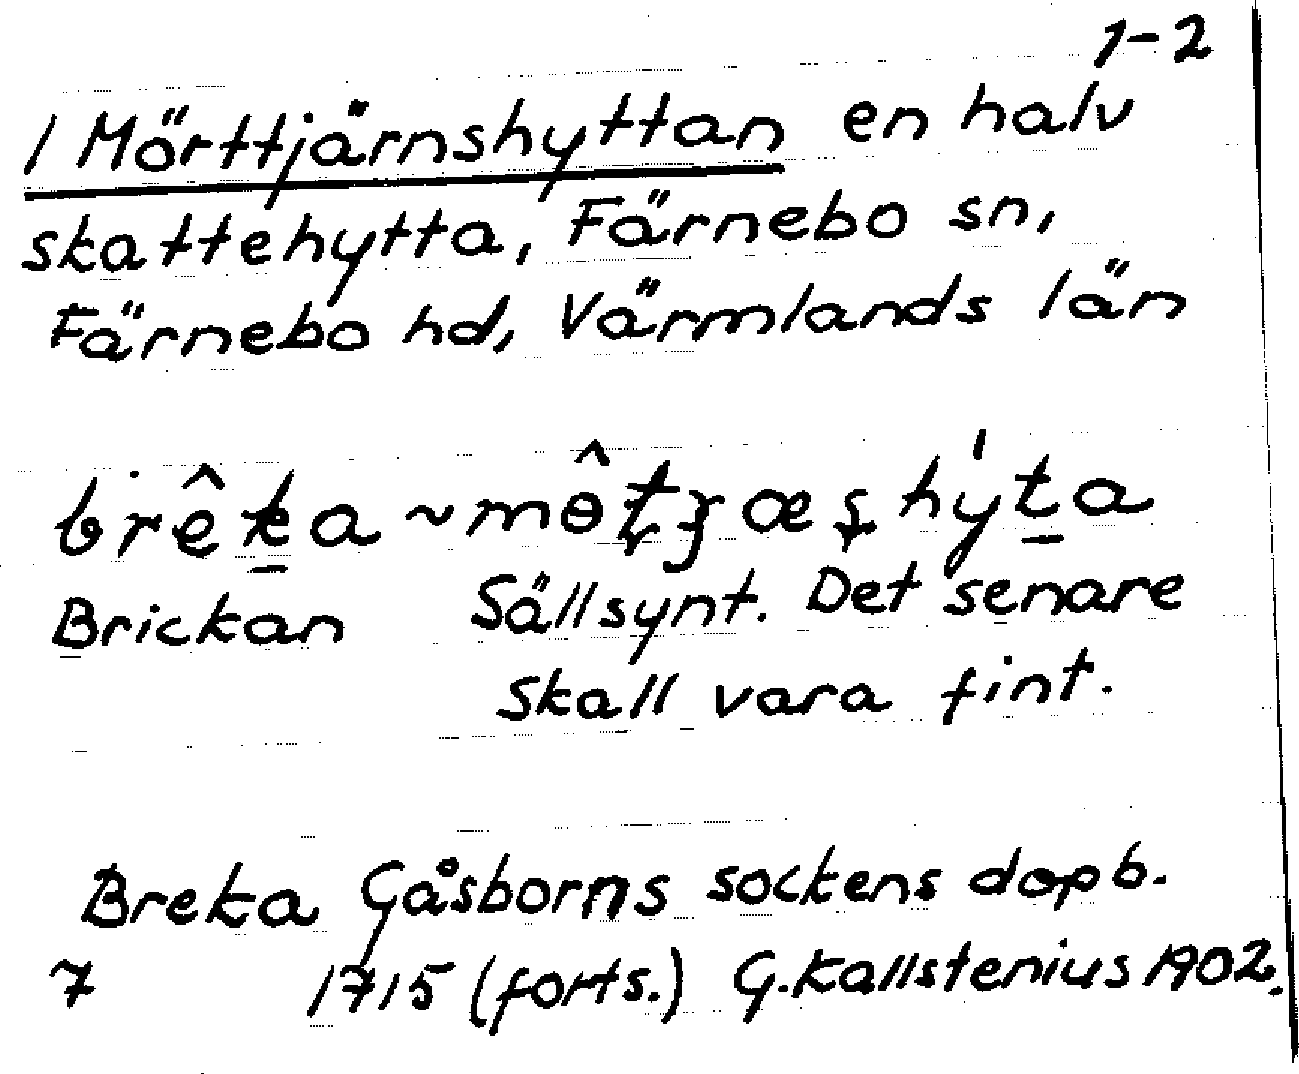 1-2
1 Mörttjärnshyttan en halv
skattehytta, Färnebo sn,
Färnebo hd, Värmlands län
Brickan Sällsynt. Det senare
skall vara fint.
Breka Gåsborns sockens dopb.
7 1715 (forts.) G. Kallstenius 1902.